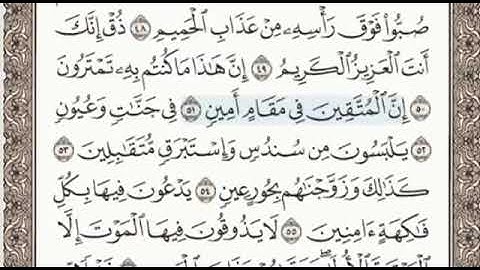 صُبُّوا۟ فَوْقَ رَأْسِهِۦ مِنْ عَذَابِ ٱلْحَمِيمِ ٤٨ ذُقْ إِنَّكَ
أَنتَ ٱلْعَزِيزُ ٱلْكَرِيمُ ٤٩ إِنَّ هَٰذَا مَا كُنتُم بِهِۦ تَمْتَرُونَ
٥٠ إِنَّ ٱلْمُتَّقِينَ فِى مَقَامٍ أَمِينٍ ٥١ فِى جَنَّٰتٍ وَعُيُونٍ
٥٢ يَلْبَسُونَ مِن سُندُسٍ وَإِسْتَبْرَقٍ مُّتَقَٰبِلِينَ ٥٣
كَذَٰلِكَ وَزَوَّجْنَٰهُم بِحُورٍ عِينٍ ٥٤ يَدْعُونَ فِيهَا بِكُلِّ
فَٰكِهَةٍ ءَامِنِينَ ٥٥ لَا يَذُوقُونَ فِيهَا ٱلْمَوْتَ إِلَّا